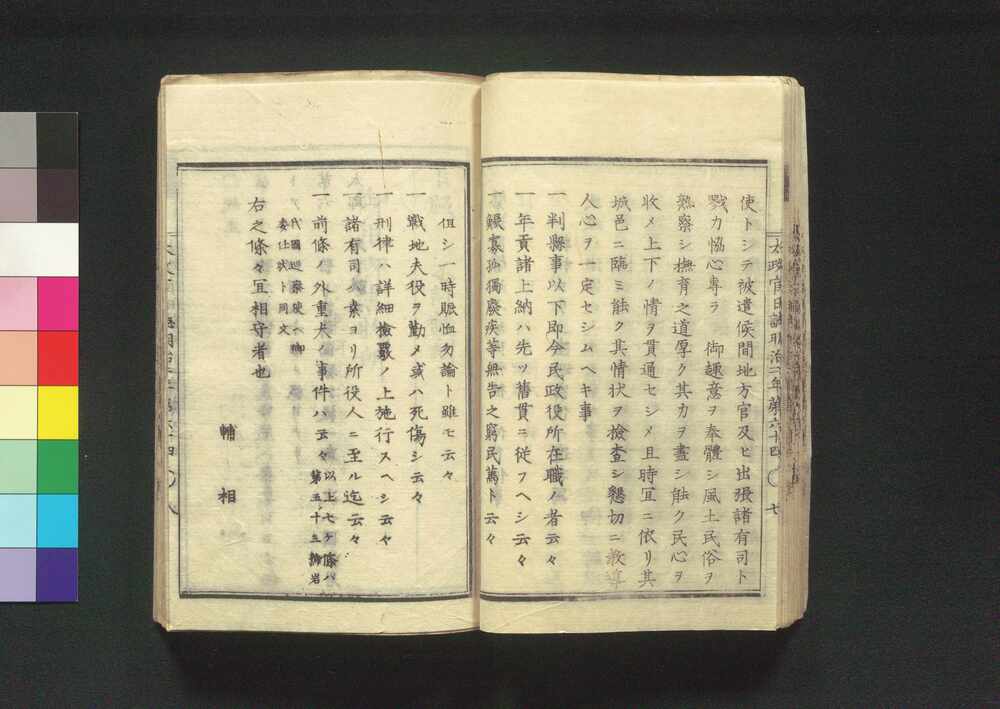 太政官日誌明治二年第六十四
七
使トシテ被遣候間地方官及ヒ出張諸有司ト
戮力恊心專ラ　御趣意ヲ奉體シ風土民俗ヲ
熟察シ撫育之道厚ク其力ヲ盡シ能ク民心ヲ
收メ上下ノ情ヲ貫通セシメ且時宜ニ依リ其
城邑ニ臨ミ能ク其情状ヲ檢査シ懇切ニ教導
人心ヲ一定セシムヘキ事
一判縣事以下即今民政役所在職ノ者云々
一年貢諸上納ハ先ツ舊貫ニ從フヘシ云々
一鰥寡孤獨廢疾等無告之窮民萬ト云々
但シ一時賑恤勿論ト雖モ云々
一戰地夫役ヲ勤メ或ハ死傷シ云々
一刑律ハ詳細檢覈ノ上施行スヘシ云々
一諸有司ノ業ヨリ所役人ニ至ル迄云々
一前條ノ外重大ノ事件ハ云々
以上七ケ條ハ
第五十三號岩
代國巡察使ヘ御
委任状ト同文
右之條々宜相守者也
輔相